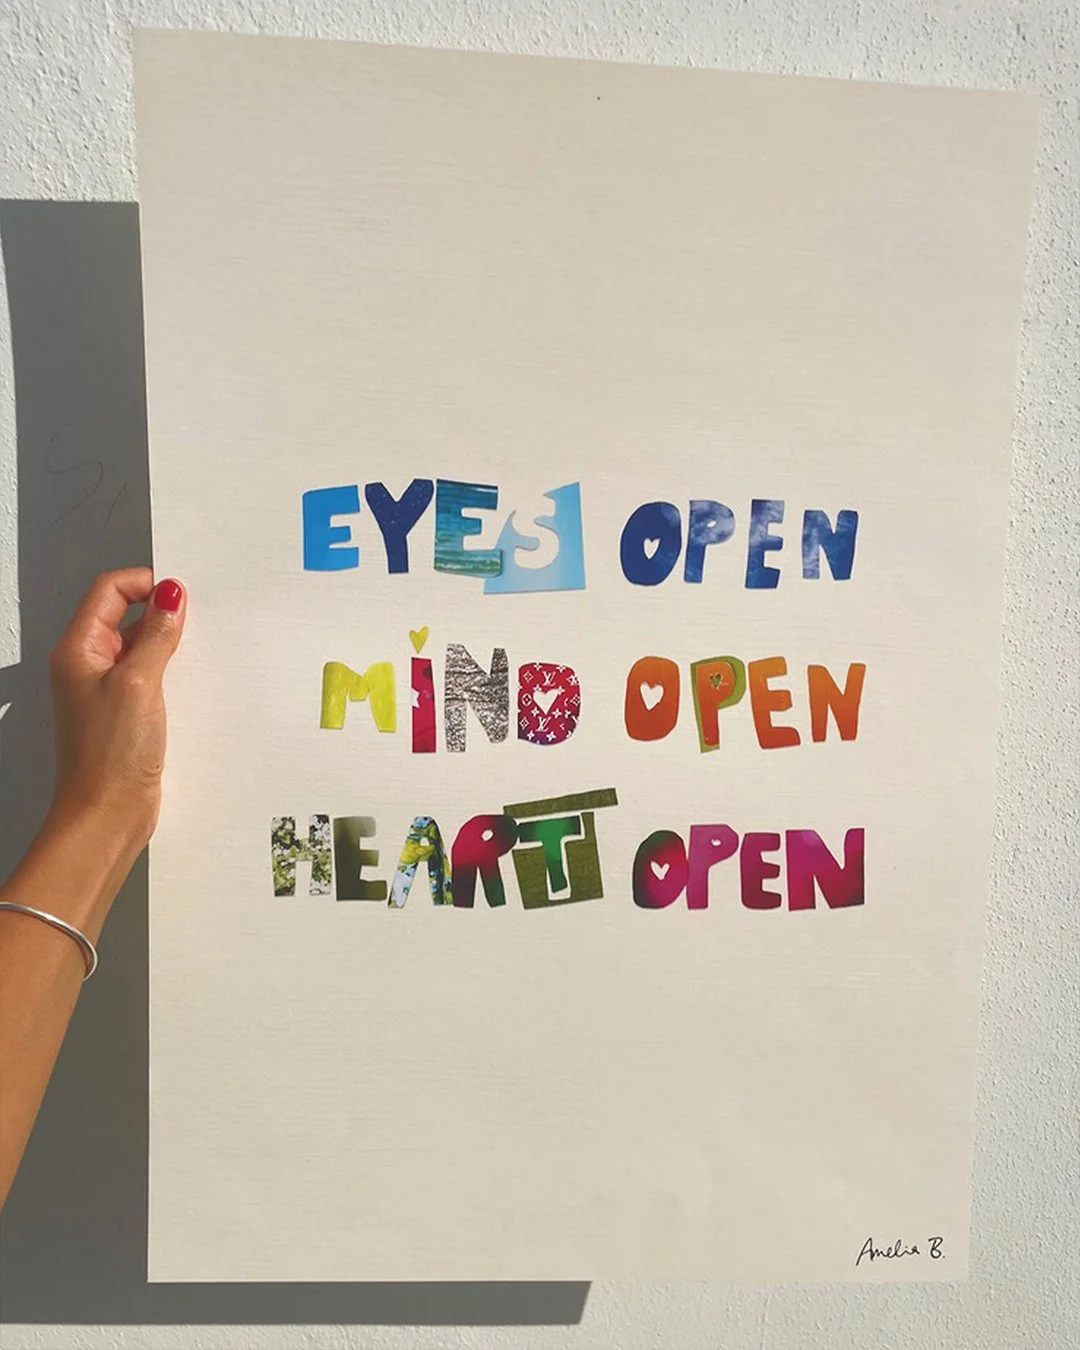 EYES OPEN
MiND OPEN
HEART OPEN
Amelia B.